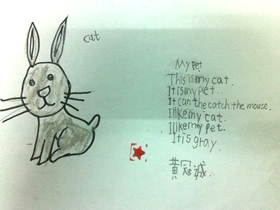 cat
My pet
This is my cat.
It is my pet.
It can the catch the mouse.
I like my cat.
I like my pet.
It is gray.
黄冠诚